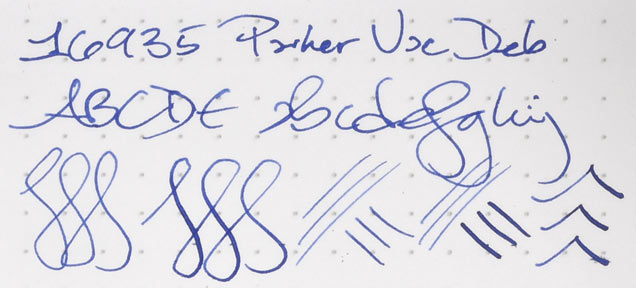 16935 Parker Vac Deb
ABCDE abcdefghij